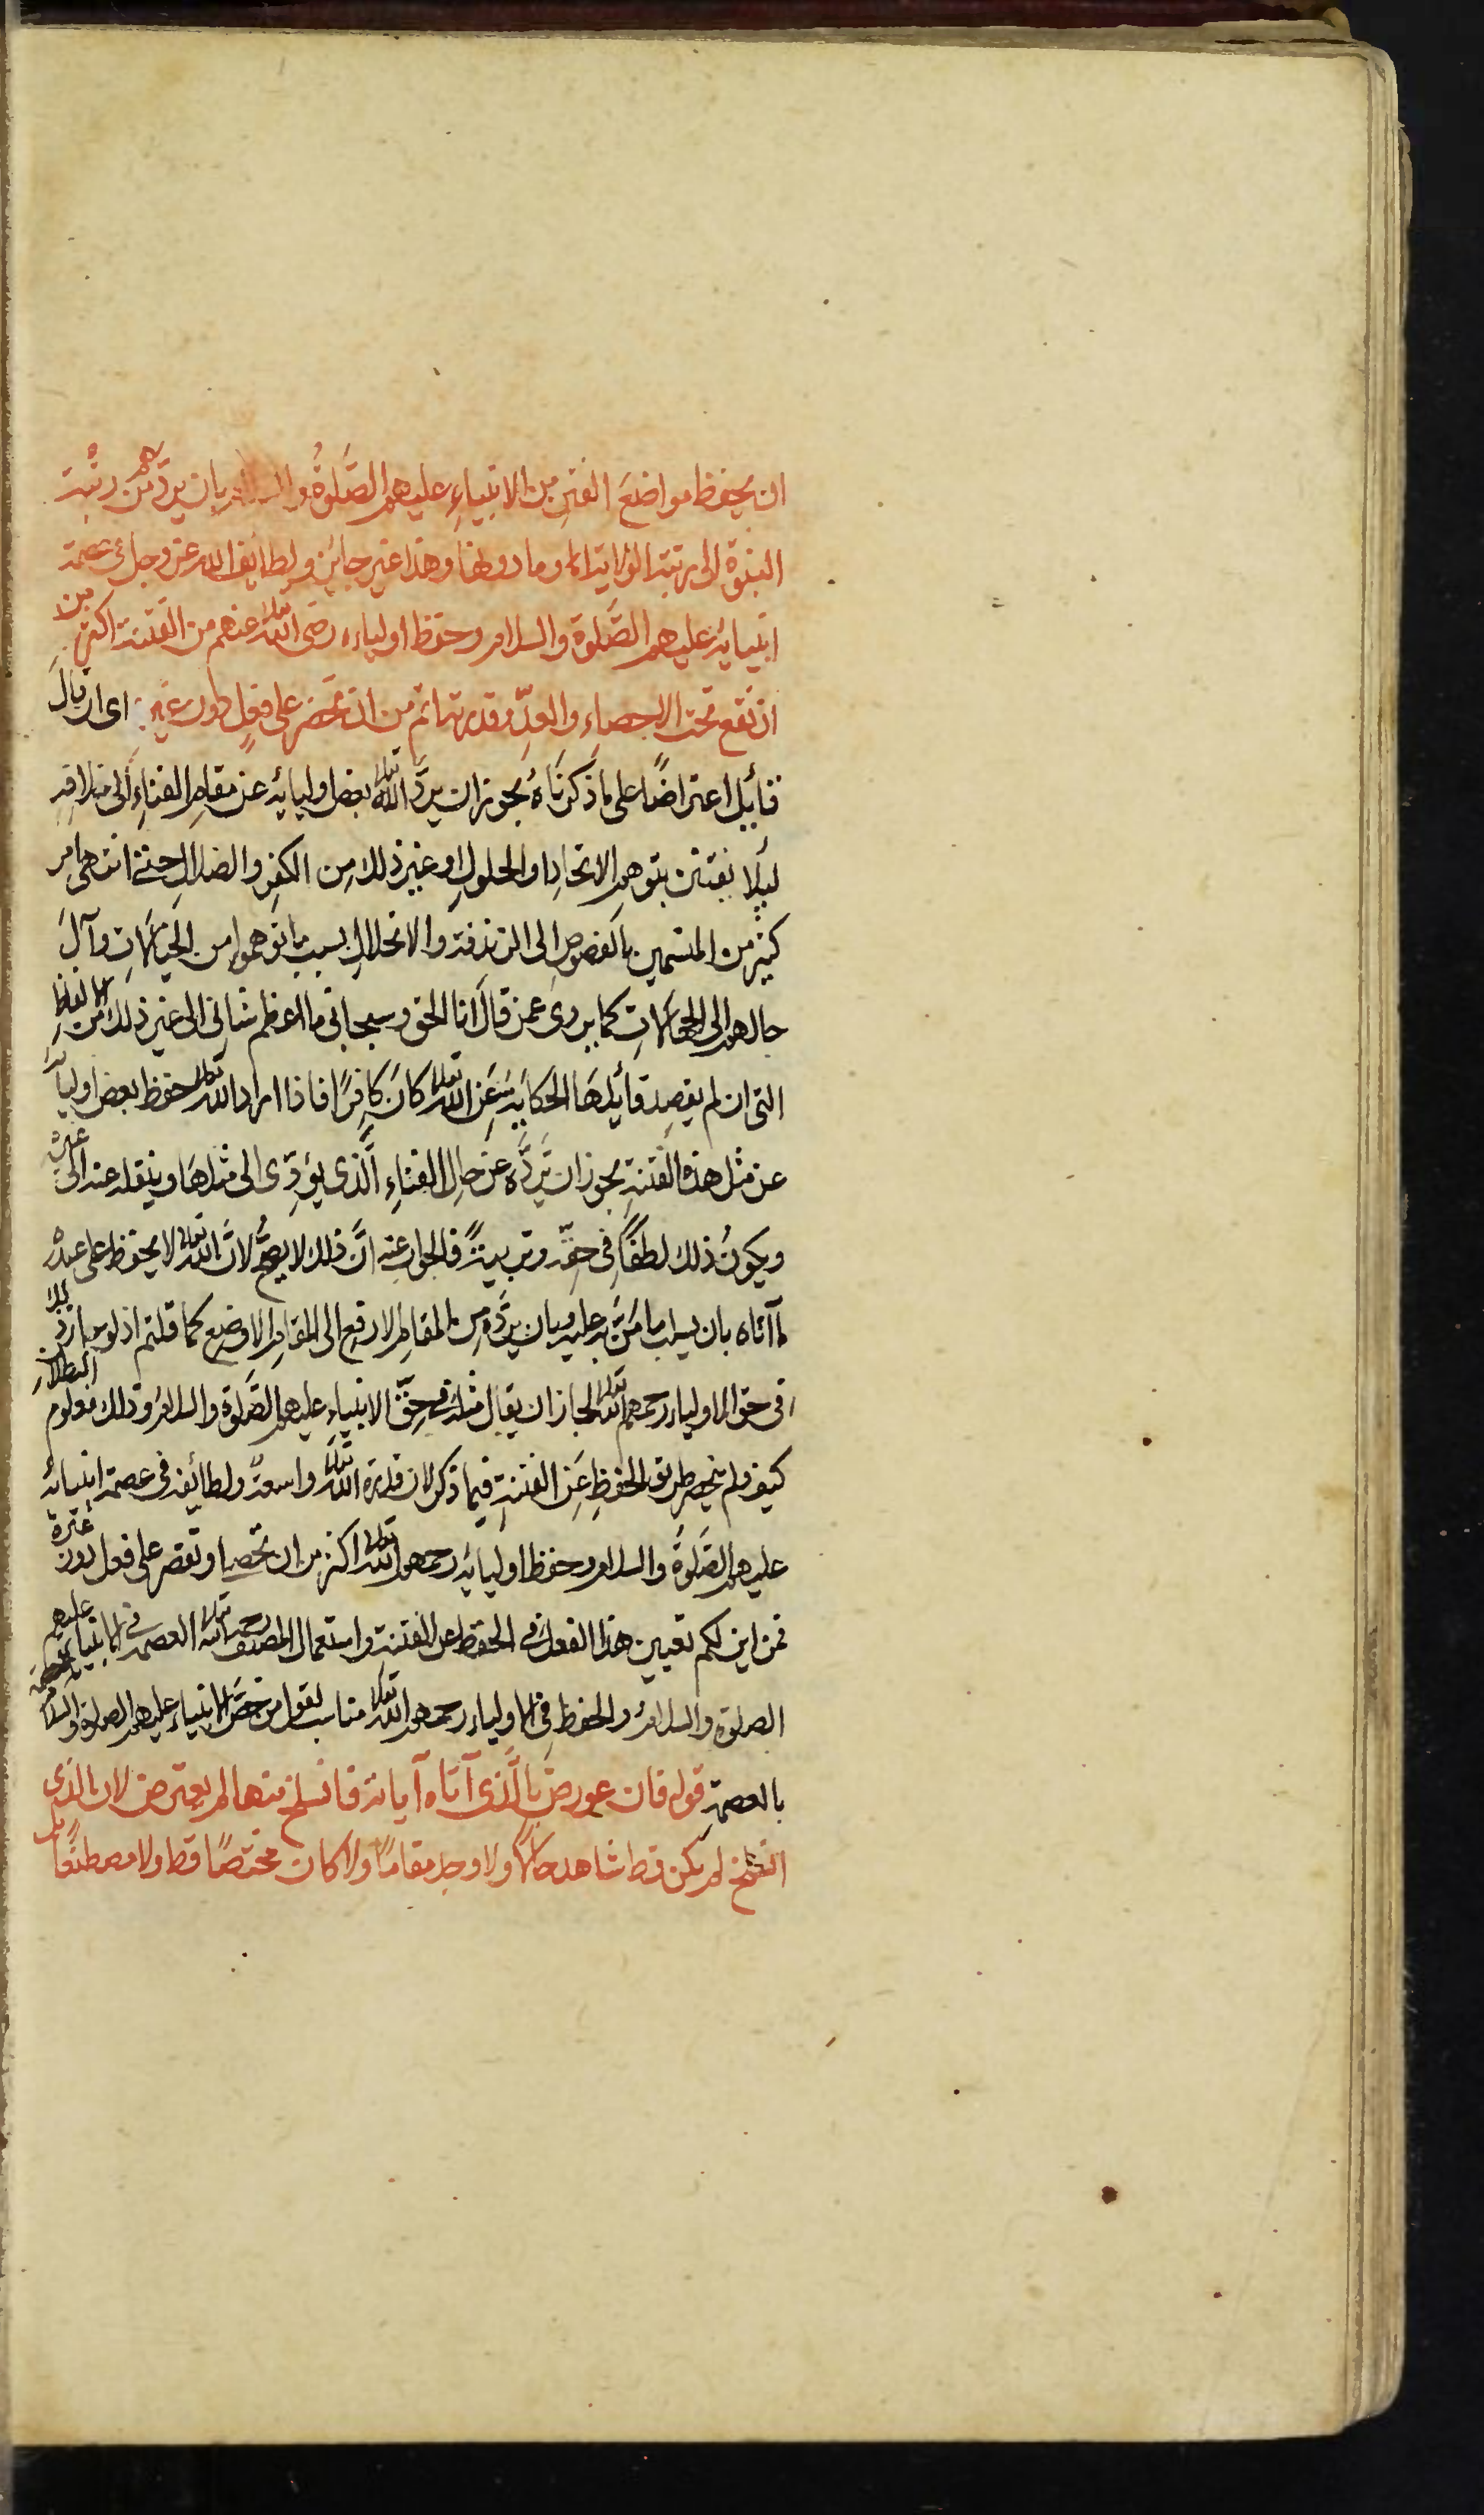 ان يحفظ مواضع الفتن من الانبياءِ عليهم الصَّلوةُ والسلام بان يردّهم من رتبة
النبوّة الى رتبة الولاية او ما دونها وهذا غير جايز ولطائف الله عز وجل فى عصمة
انبيائه عليهم الصَّلوة والسلام وحفظ اولياءه رضى الله تعالى عنهم من الفتنة اكثر من
ان تقع تحت الاحصاءِ والعدِّ وقدرته اتم من ان تحصر على فعلٍ دون غيره اى ان قالَ
قائل اعتراضًا على ما ذكرنَاهُ يجوز ان يردَّ الله تعالى بعض اوليائه عن مقامِ الفناءِ الى ما
ليلا يفتتن بتوهم الاتحادِ او الحلولِ او غير ذلك مِن الكفرِ والضلالِ حتى انتهى امر
كثير من المتسمين بالفصوص الى الزندقة والانحلالِ بسبب ما توهموه من الخيالاتِ وآلَ
حالهم الى الجهالاتِ كما يروى عمن قالَ انا الحق وسبحانى ما اعظم شانى الى غير ذلك من الالفاظِ
التى ان لم يقصِد قائلهَا الحكايةَ عَنِ الله تعالى كانَ كافِرًا فاذا اراد الله تعالى حفظ بعض اوليائه
عن مثل هذه الفتنةِ يجوز ان يَردَّه عن حال الفناءِ الَّذى يؤدِّى الى مثلهَا وينقله عنه الى غيره
ويكونُ ذلك لطفًا فى حقّه وتربيةً فالجواب عنه انَّ ذلك لا يصحُّ لانَّ الله تعالى لا يحفظ على عبده
ما آتاه بان يسلب ما مَنَّ به عليه وبان يردَّه مِن المقامِ الارفع الى المقامِ الاوضع كما قلتم اذ لو جاز ذلك
فى حق الاولياء رحمهم الله تعالى لجاز ان يقال مثله فى حقّ الانبياءِ عليهم الصَّلوة والسلام وذلك معلوم البطلانِ
كيف ولم ينحصر طريق الحفظِ عَنِ الفتنةِ فيما ذكر لان قدرة الله تعالى واسعةٌ ولطائفه فى عصمة انبيائه
عليهم الصَّلوةُ والسلام وحفظ اوليائه رحمهم الله تعالى اكثر من ان تحصى او تقصر على فعل دون غيره
فمن اين لكم تعيين هذا الفعل فى الحفظ عن الفتنةِ واستعمال المصنف رحمه الله تعالى العصمة فى الانبياءِ عليهم
الصلوة والسلامُ والحفظ فى الاولياء رحمهم الله تعالى مناسب لقول من خصَّ الانبياء عليهم الصلوة والسلام
بالعصمةِ قوله فان عورضَ بالَّذى آتاه آياته فانسلخ منها لم يعترض لان الذى
انسلخ لم يكن قط شاهد حالًا ولا وجد مقامًا ولا كان مختصًا قط ولا مصطنعًا بل